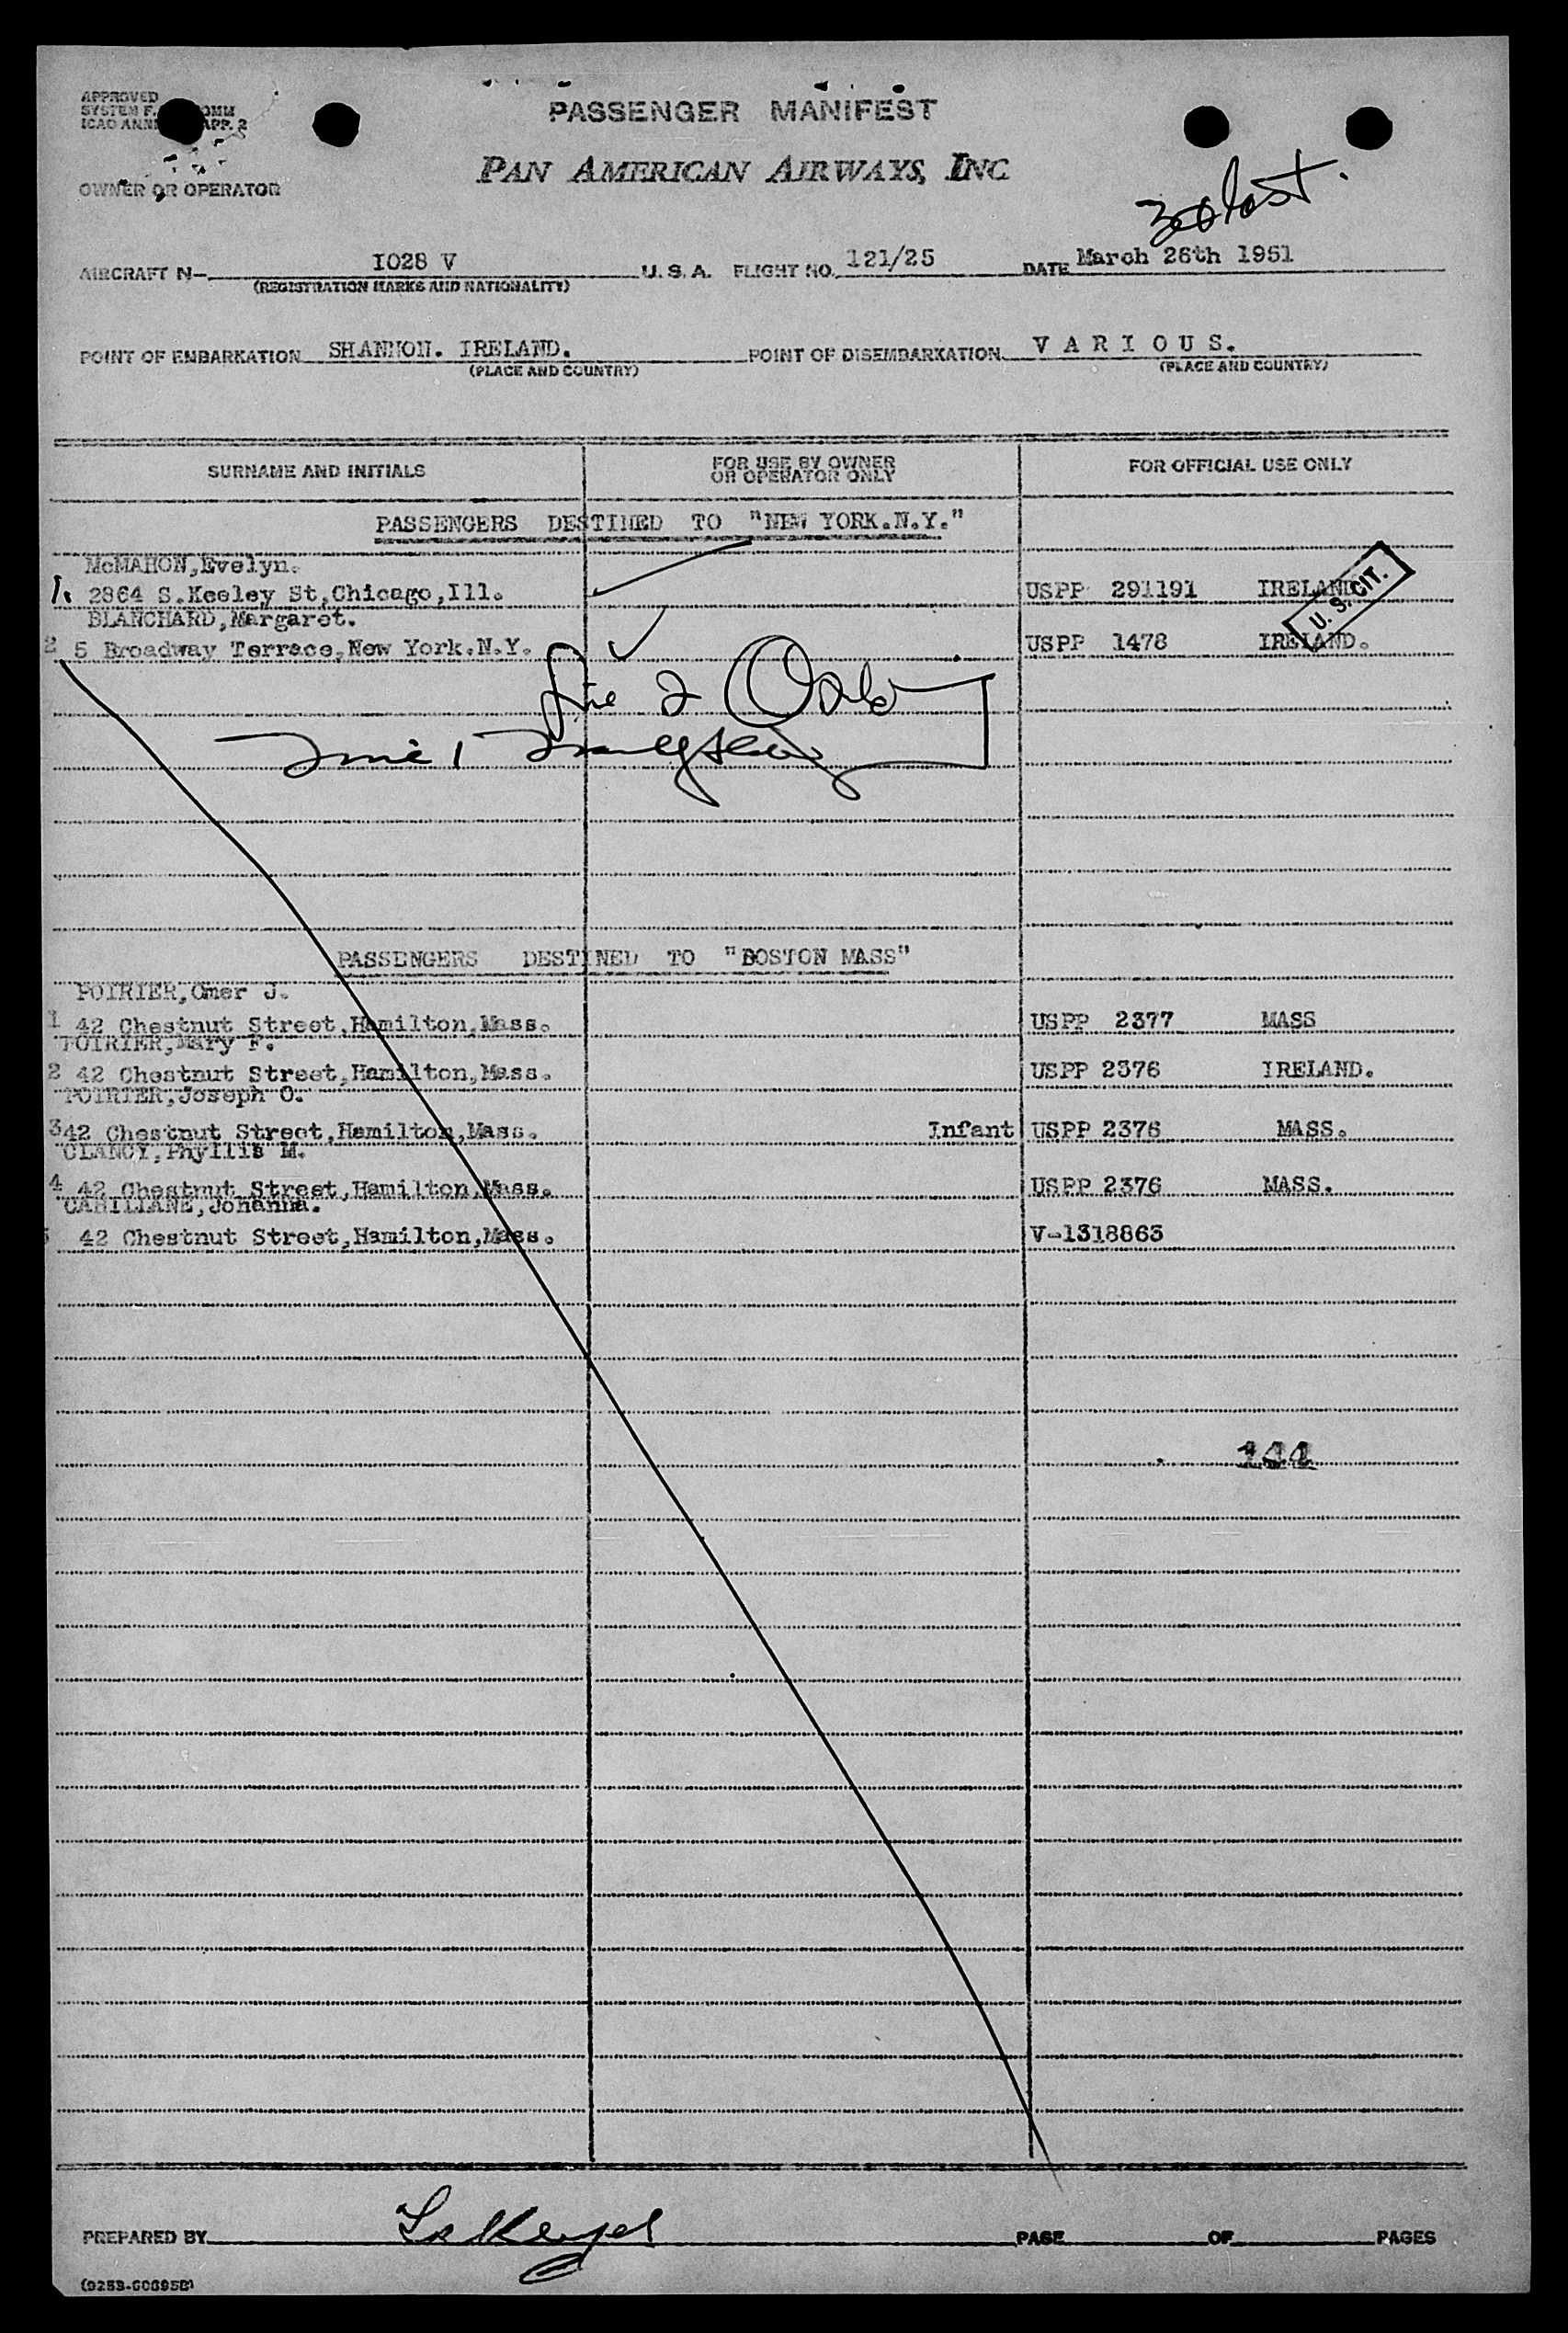 APPROVED
SYSTEM F. COMM
ICAO ANNE APP. 2
PASSENGER MANIFEST
PAN AMERICAN AIRWAYS, INC
OWNER OR OPERATOR
AIRCRAFT N- 1028 V U.S.A. FLIGHT NO. 121/25 DATE March 26th 1951
(REGISTRATION MARKS AND NATIONALITY)
POINT OF EMBARKATION SHANNON. IRELAND. POINT OF DISEMBARKATION V A R I O U S.
(PLACE AND COUNTRY) (PLACE AND COUNTRY)
SURNAME AND INITIALS FOR USE BY OWNER OR OPERATOR ONLY FOR OFFICIAL USE ONLY
PASSENGERS DESTINED TO "NEW YORK.N.Y."
McMAHON,Evelyn.
1. 2864 S.Keeley St,Chicago,Ill. USPP 291191 IRELAND
U.S.CIT.
BLANCHARD,Margaret.
2 5 Broadway Terrace,New York.N.Y. USPP 1478 IRELAND.
Line 2
Line 1
PASSENGERS DESTINED TO "BOSTON MASS"
POIRIER,Omer J.
1 42 Chestnut Street,Hamilton,Mass. USPP 2377 MASS
POIRIER,Mary F.
2 42 Chestnut Street,Hamilton,Mass. USPP 2376 IRELAND.
POIRIER,Joseph O.
3 42 Chestnut Street,Hamilton,Mass. Infant USPP 2376 MASS.
CLANCY,Phyllis M.
4 42 Chestnut Street,Hamilton,Mass. USPP 2376 MASS.
CAHILLANE,Johanna.
42 Chestnut Street,Hamilton,Mass. V-1318863
144
PREPARED BY PAGE OF PAGES